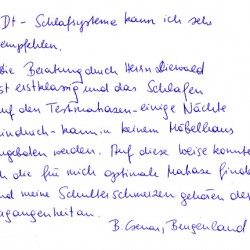 Dt - Schlafsysteme kann ich sehr
empfehlen.
die Beratung durch Herrn Diewald
ist erstklassig und das Schlafen
auf den Testmatrazen - einige Nächte
hindurch - kann in keinem Möbelhaus
angeboten werden. Auf diese Weise konnte
ich die für mich optimale Matraze finden
und meine Schulterschmerzen gehören der
Vergangenheit an.
B. Csenar, Burgenland